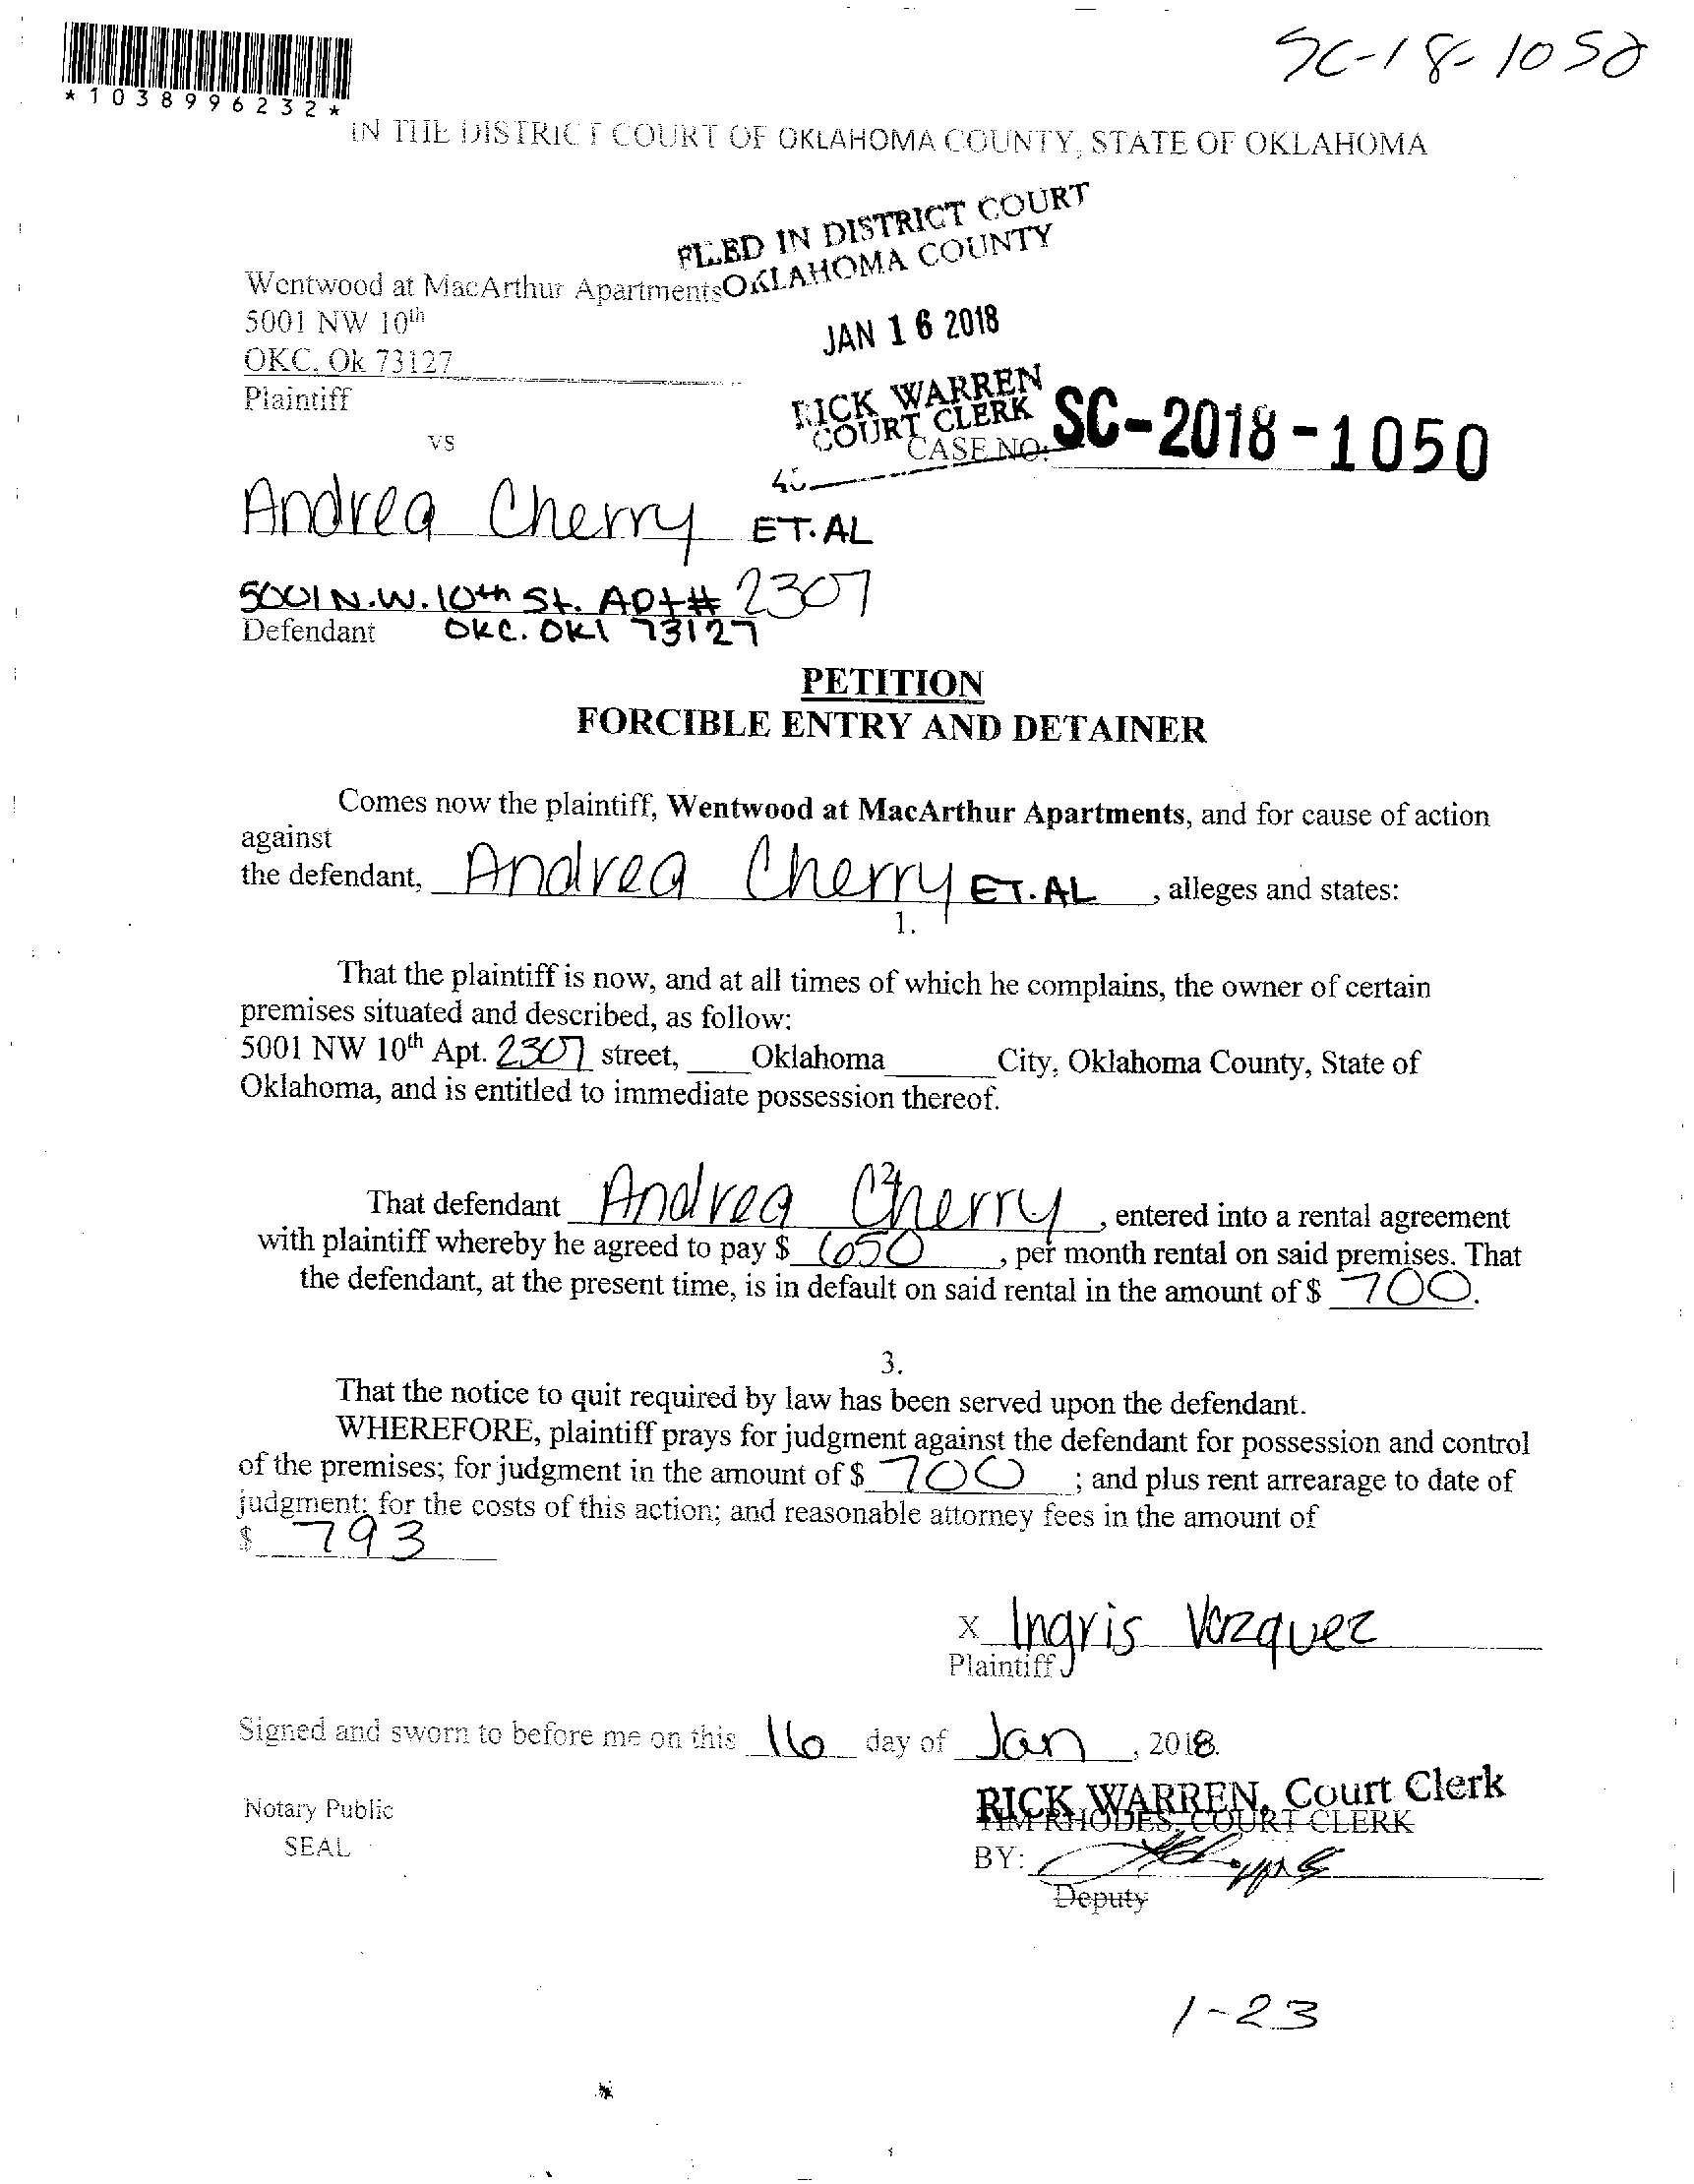 SC-18-1050
*1038996232*
IN THE DISTRICT COURT OF OKLAHOMA COUNTY, STATE OF OKLAHOMA
FILED IN DISTRICT COURT
OKLAHOMA COUNTY
Wentwood at MacArthur Apartments
5001 NW 10th
JAN 16 2018
OKC, Ok 73127
Plaintiff
RICK WARREN
COURT CLERK
vs
CASE NO: SC-2018-1050
Andrea Cherry ET.AL
5001 N.W. 10th St. Apt# 2307
Defendant OKC. OKl 73127
PETITION
FORCIBLE ENTRY AND DETAINER
Comes now the plaintiff, Wentwood at MacArthur Apartments, and for cause of action
against
the defendant, Andrea Cherry ET.AL , alleges and states:
1.
That the plaintiff is now, and at all times of which he complains, the owner of certain
premises situated and described, as follow:
5001 NW 10th Apt. 2307 street, ____Oklahoma_______City, Oklahoma County, State of
Oklahoma, and is entitled to immediate possession thereof.
2.
That defendant Andrea Cherry , entered into a rental agreement
with plaintiff whereby he agreed to pay $ 650 , per month rental on said premises. That
the defendant, at the present time, is in default on said rental in the amount of $ 700.
3.
That the notice to quit required by law has been served upon the defendant.
WHEREFORE, plaintiff prays for judgment against the defendant for possession and control
of the premises; for judgment in the amount of $ 700 ; and plus rent arrearage to date of
judgment; for the costs of this action; and reasonable attorney fees in the amount of
$ 793
x Ingris Vazquez
Plaintiff
Signed and sworn to before me on this 16 day of Jan , 2018.
RICK WARREN, Court Clerk
Notary Public
TIM RHODES, COURT CLERK
SEAL
BY:
Deputy
1-23